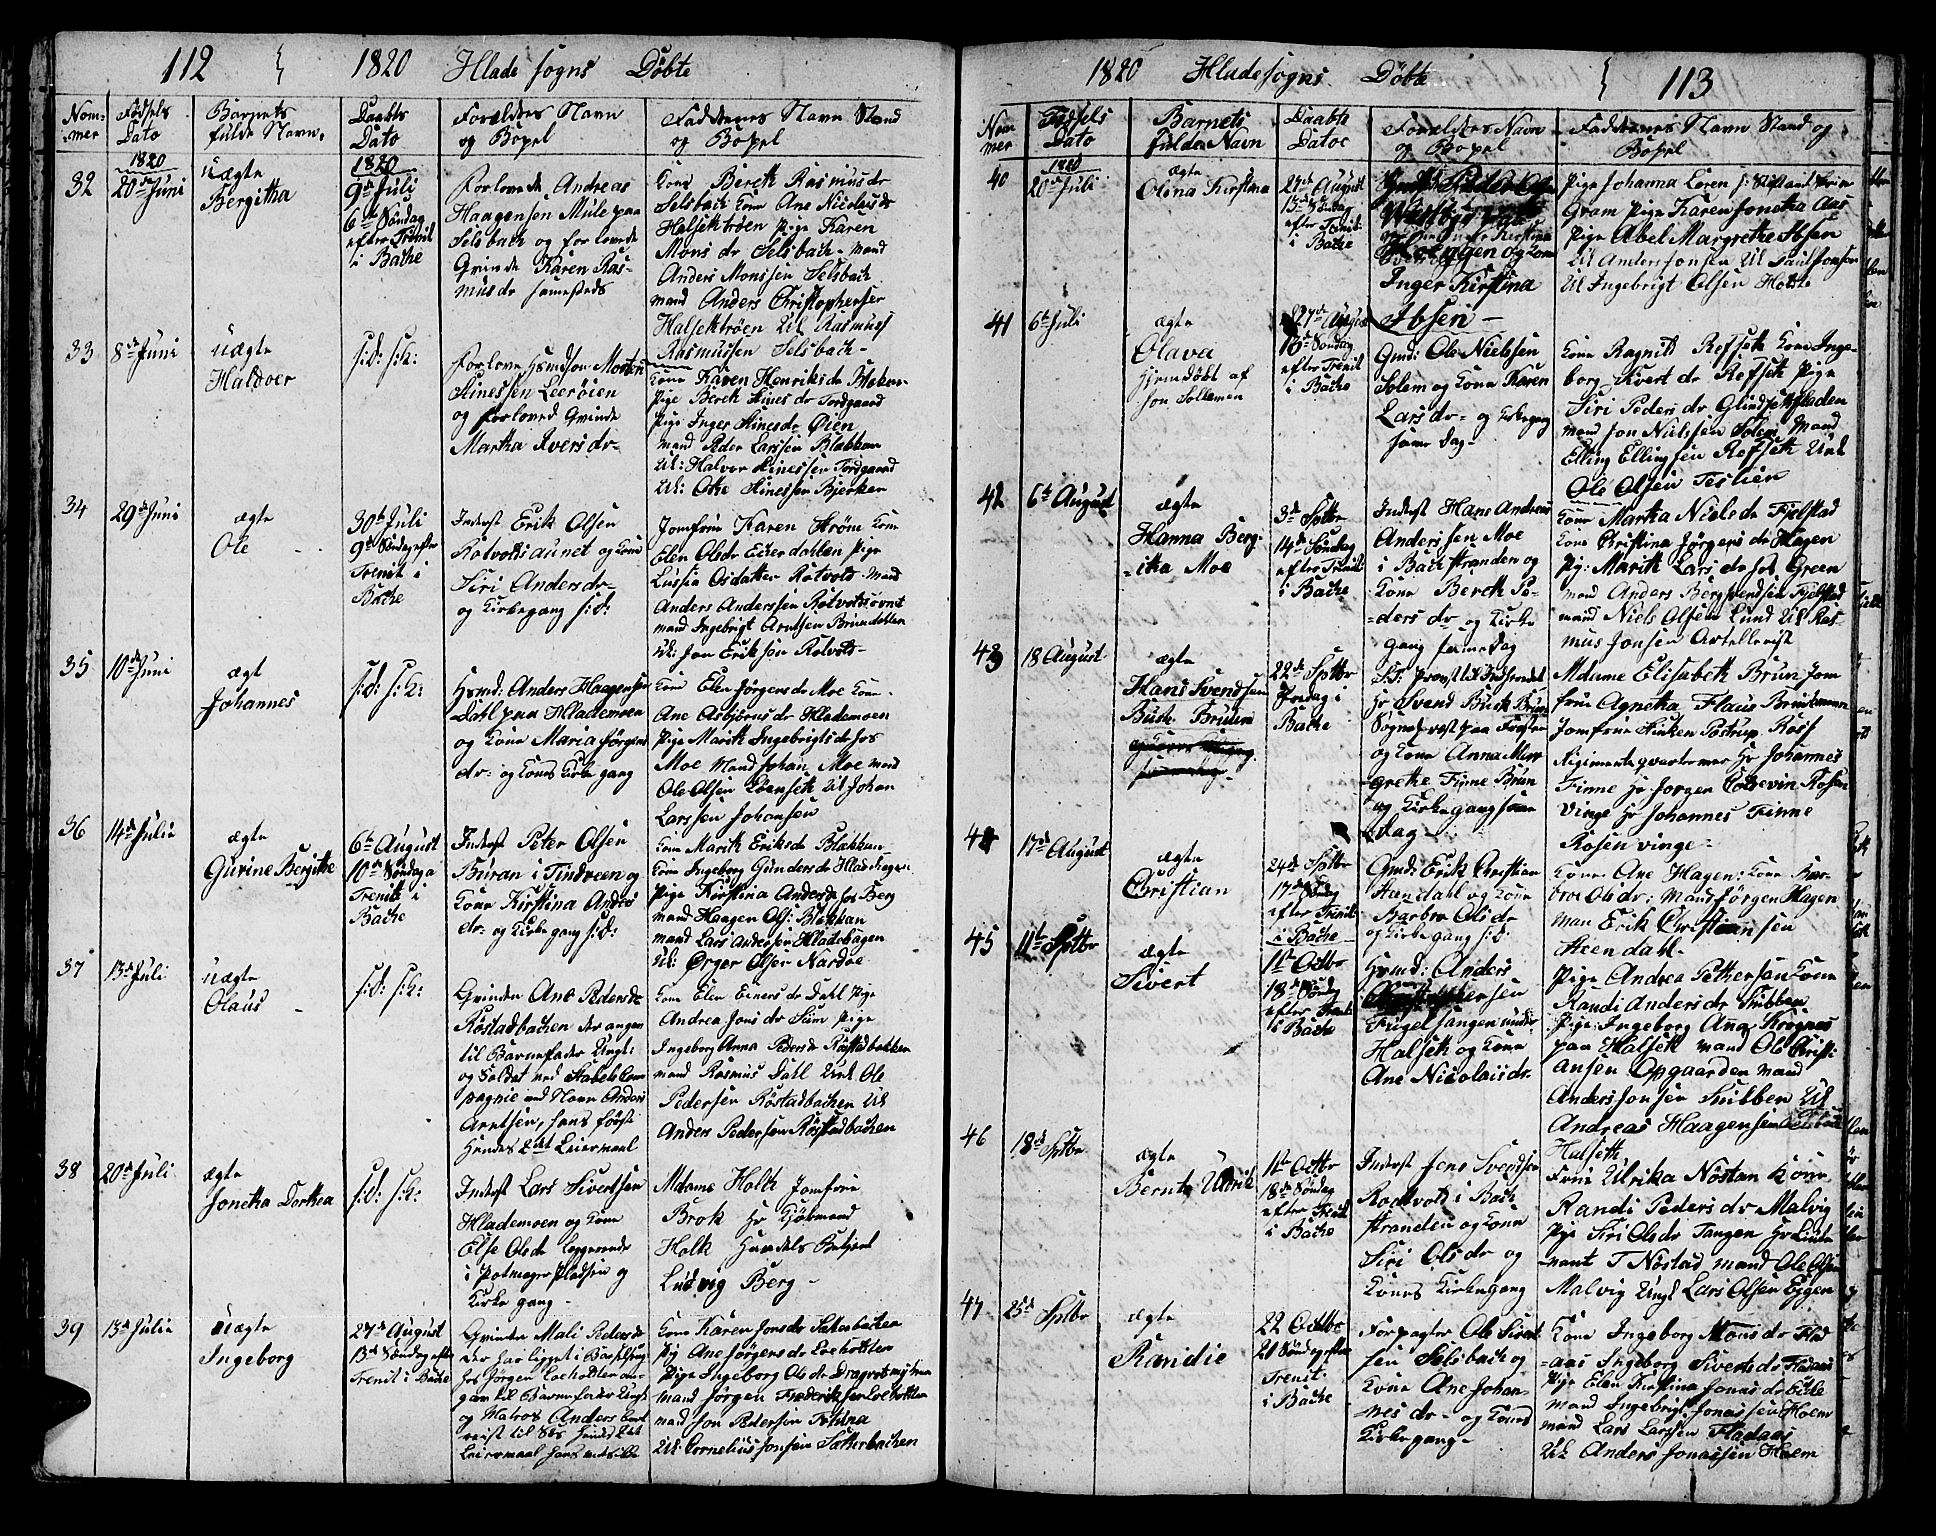 112 1820 Hlade sogns Døbte
Nom-
mer
Fødsels
Dato
Barnets
fulde Navn,
Daabs
Dato
Forældres Navn
og Bopel
Faddernes Navn Stand
og Bopel
32
1820
20de Juni
uægte
Bergitha
1820
9de Juli
6te Søndag
efter Trenit
i Bache
Forlovede Andreas
Haagensen Mule paa
Selsbach og forlovede
Qvinde Karen Ras-
mus dr sammesteds
Kone Bereth Rasmus dr
Selsbach Kone Ane Nicolai dr
Halsetrøen Pige Karen
Mons dr Selsbach - mand
Anders Monsen Selsbach
mand Anders Christophersen
Halsethrøen Uk Rasmus
Rasmussen Selsbach -
33
8de Juni
uægte
Haldoer
s:d: s:k:
Forlove Hsmdson Morten
Hinessen Leerøien
og forloved Qvinde
Martha Iversdr-
Kone Karen Henriks dr Blekan-
Pige Bereh Hines dr Tordgaard
Pige Inger Hinesdr Øien
mand Peder Larssen Blakkan
Uk: Halvor Hinessen Tordgaard
Uk: Otte Hinessen Bjerken
34
29de Juni
ægte
Ole
30te Juli
9de Søndag efter
Trenit i
Bache
Inderst Erik Olsen
Rotvoldsaunet og Kone
Siri Anders dr-
og Kirkegang s:d:
Jomfrue Karen Strøm Kone
Elen Olsdr Eierdahlen Pige
Lussia Osdatter Rotvold - Mand
Anders Anderssen Rotvoldsovnet
mand Ingebrigt Arntsen Brundahlen
Uk: Jon Eriksen Rotvold-
35
10de Juni
ægt
Johannes
s:d: s:k:
Hsmd: Anders Haagensen
Dahl paa Hlademoen
og Kone Maria Jørgens
dr- og Kones Kirkegang
Kone Elen Jørgens dr Moe Kone-
Ane Asbjørns dr Hlademoen
Pige Marith Ingebrigts dr hos
Moe Mand Johan Moe mand
Ole Olsen Loenseth Uk Johan
Larssen Johansen
36
14de Julie
ægte
Gurine Bergithe
6te August
10de Søndag a
Trenit i
Bache
Inderst Peter Olsen
Buran i Tindveen og
Kone Kirstina Anders
dr- og Kirkegang s:d:
Kone Marith Eriks dr Blakkan-
Kone Ingeborg Gunders dr Hladehage-
Pige Kirstina Anders dr hos Berg
mand Haagen Ols: Blakkan
mand Lars Andersen Hladehagen
Uk: Ørger Olsen Nardøe
37
13de Juli
uægte
Olaus
s:d: s:k:
Qvinden Ane Peders dr
Røstadbachen der angav
til Barnefader Ungk:
og Soldat ved Stabels Com
pagnie ved Navn Anders
Arntsen, hans første
hendes 2det Leiermaal
Kone Elen Einers dr Dahl Pige
Andrea Jons dr Siim Pige
Ingeborg Anna Peders dr Røstadbakken
mand Rasmus Dall Unk Ole
Pedersen Røstadbachen Uk
Anders Pedersen Røstadbachen
38
20de Juli
ægte
Jonetha Dorthea
s:d: s:k:
Inderst Lars Sivertsen
Hlademoen og Kone
Else Olsdr Liggerende
i Potmager Pladsen og
Kirkegang-
Mdame Holk Jomfrue
Brok Hr Kjøbmand
Holk Handels Betjent
Ludvig Berg-
39
13de Julie
uægte
Ingeborg
27de August
13de Søndag efter
Trenit i Bache
Qvinden Mali Peders dr
der har ligget i Barselseng
hos Jørgen Loeholten an-
gav til Barnefader Ungk
og Matros Anders
reist til Søs hendes 2det
Leiermaal hans
Kone Karen Jonsdr Sætterbachen
Pig Ane Jørgens dr Loeholten
Pige Ingeborg Ols dr Dragvolsmyhren
mand Jørgen Frederiksen Loeholten
mand Jon Pedersen Festina
Uk: Cornelius Jonsen Sætterbachen
1820 Hlade sogns Døbte 113
Num
mer
Fødsels
Dato
Barnets
fulde Navn
Daabte
Datoe
Forældres Navn
og Bopel
Faddernes Navn Stand og
Bopel
40
1820
20de Juli
ægte
Olina Kirstina
27de August
13de Søndag
efter Trenit
i Bache
og Kone
Inger Kirstina
Ibsen-
Pige Johanna Loren
Gram Pige Karen Jonetha Aas
Pige Abel Margrethe Ibsen
Uk Anders Jonsen Uk Paul Jonsen
Uk Ingebrigt Olsen Holste
41
6te Juli
ægte
Olava
hjemedøbt af
Jon Sollemen
27de August
13de Søndag
efter Trenit
i Bache
Gmd: Ole Nielssen
Solem og Kone Karen
Lars dr- og Kirkegang
samme Dag-
Kone Ragnild Refseth Kone Inge-
borg Sivert dr Refseth Pige
Siri Peders dr Glindsethfladen
mand Jon Nielssen Solem Mand
Elling Ellingsen Refseth Unk
Ole Olsen Teslien
42
6te August
ægte
Hanna Berg-
itha Moe
3de Sptbr
14de Søndag
efter Trenit
i Bache
Inderst Hans Andreas
Anderssen Moe
i Bachstranden og
Kone Bereth Pe-
ders dr- og Kirke
gang samme Dag
Kone Martha Niels dr Fjelstad
Kone Christina Jørgens dr Hagen
Pig: Marith Lars dr hos Green
mand Anders Bergsvendsen Fjelstad
mand Niels Olsen Lund Uk Ras
mus Jonsen Artellerist
43
18 August
ægte
Hans Svendsen
Busk Bruun
22de Sptbr
Fredag i
Bache
S:T: Provst til Indherred
Hr Svend Busk Brun
Sognepræst paa Frosten
og Kone Anna Mar-
grethe Finne Brun
og Kirkegang samme
dag-
Mdame Elisabeth Brun Jom
frue Agnetha Flaus Brun
Jomfrue Hinken Postrup. Rosf
Regimentsqvartermester Hr Johannes
Finne Hr Jørgen Coldevin Rosen
vinge Hr Johannes Finne
Rosenvinge-
44
17de August
ægte
Christian
24de Sptbr
17de Søndag
efter Trenit
i Bache
Gmd: Erik Christian
Steendahl og Kone
Barbro Olsdr
og Kirkegang s:d:
Kone Ane Hagen: Kone Bar-
broe Olsdr: Mand Jørgen Hagen
Man Erik Christiansen
Steendahl-
45
11te Sptbr
ægte
Sivert
1ste Octbr
18de Søndag
efter Trenit
i Bache
Hsmd: Anders
Christophersen
Fugelsangen under
Halseth og Kone
Ane Nicolais dr-
Pige Andrea Petthersen Kone
Randi Anders dr Stubben
Pige Ingeborg Ana Kregnes
paa Halseth mand Ole Christi-
ansen Opgaarden mand
Anders Jonsen Stubben Uk
Andreas Haagensen
Halseth
46
18de Sptbr
ægte
Bernt Ulrik
1ste Octbr
18de Søndag
efter Trenit
i Bache
Inderst Jens Svendsen
Rodtvold i Bach
stranden og Kone
Siri Olsdr og
Kones Kirkegang
Frue Ulrika Nøstan Kone
Randi Peders dr Malvig
Pige Siri Olsdr Tangen Hr Lieute
nant T Nøstad mand Ole Olsen
Malvig Ungk Lars Olsen Eggen
47
25de Sptbr
ægte
Randie
22 Octbr
21 Søndag efter
Trenit-
i Bache
Forpagter Ole Sivert
sen Selsbach og
Kone Ane Johan-
nes dr- og Kones
Kirkegang-
Kone Ingeborg Mons dr Flad
aas Ingeborg Siverts dr Fladaas
Pige Elen Kirstina Jonas dr
mand Ingebrigt Jonassen Holm
mand Lars Larssen Fladaas
Uk Anders Jonassen Holm